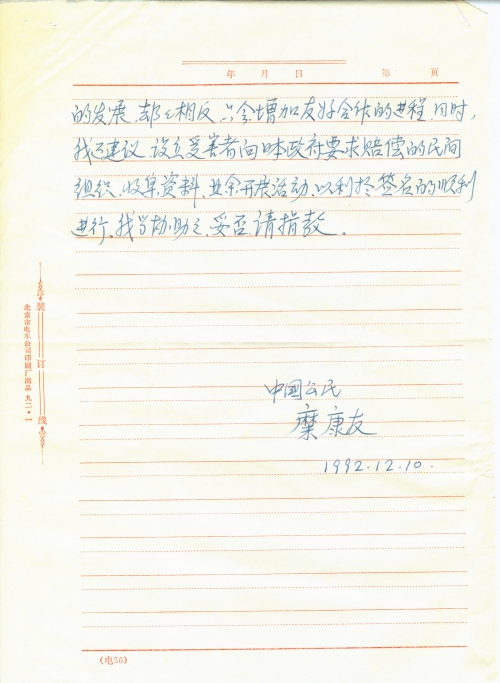 年 月 日 第 页
的发展，却々相反，只会增加友好合作的进程，同时，
我还建议，设立受害者向日本政府要求赔偿的民间
组织，收集资料，业余开展活动，以利于签名的顺利
进行，我当协助之，妥否请指教。
中国公民
糜康友
1992.12.10.
装订线
北京市电车公司印刷厂出品 九二·一
(电56)